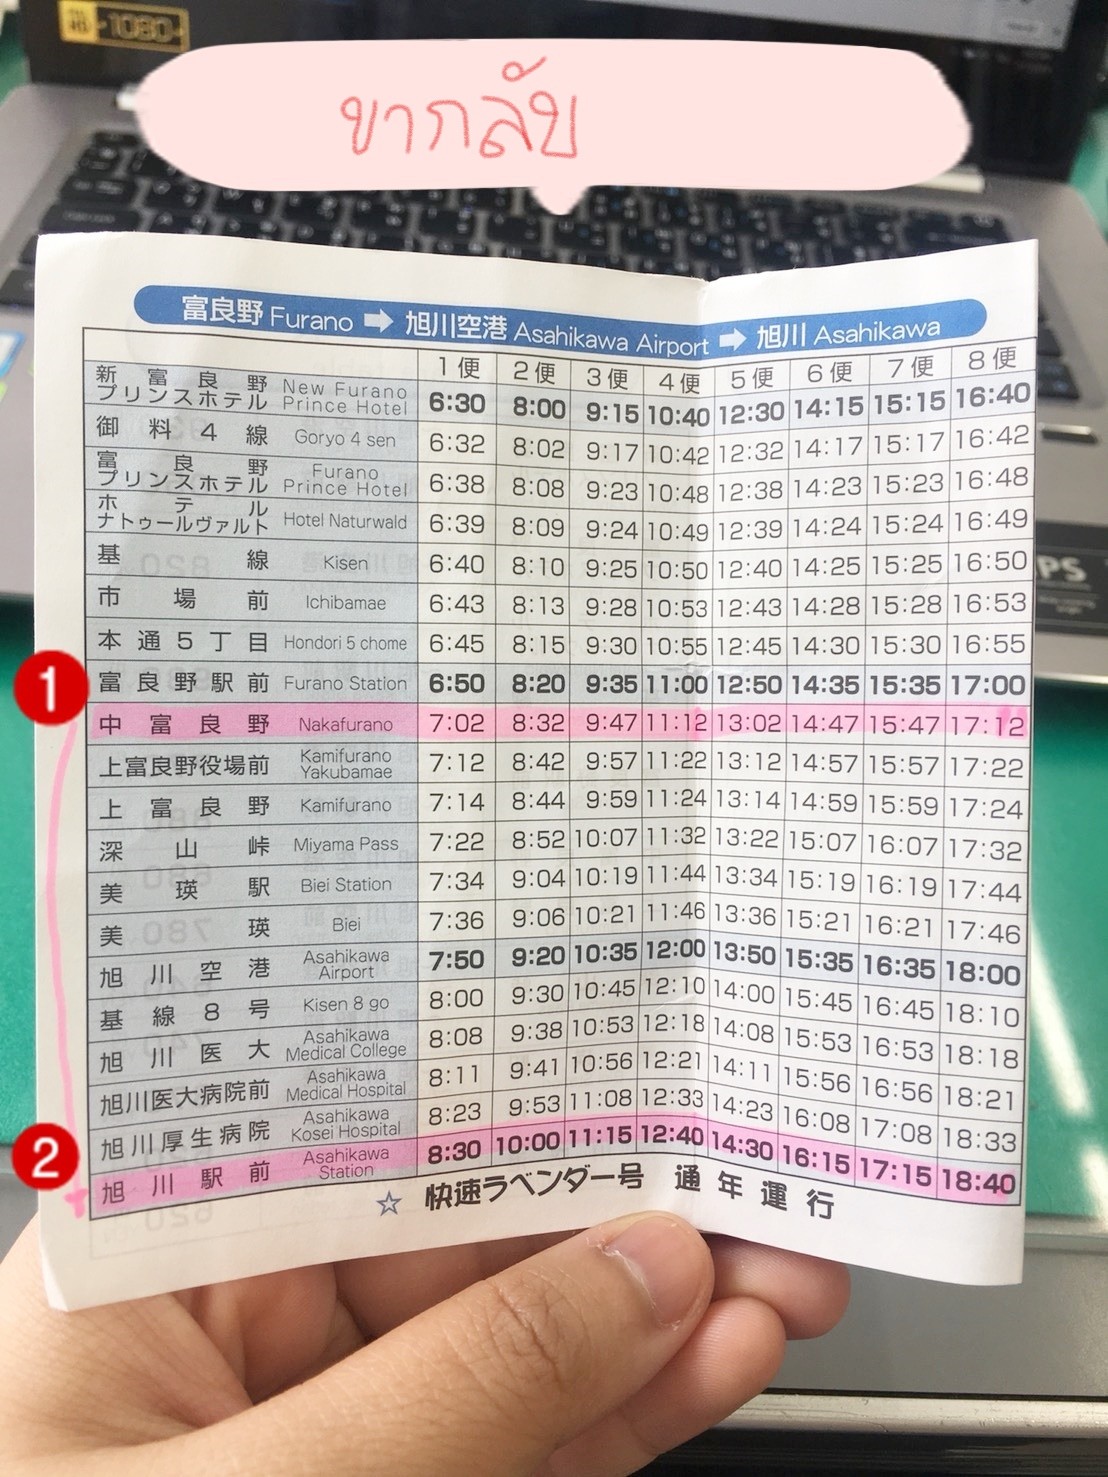 1080
ขากลับ
富良野 Furano ➡ 旭川空港 Asahikawa Airport ➡ 旭川 Asahikawa
1便 2便 3便 4便 5便 6便 7便 8便
新富良野プリンスホテル New Furano Prince Hotel 6:30 8:00 9:15 10:40 12:30 14:15 15:15 16:40
御料4線 Goryo 4 sen 6:32 8:02 9:17 10:42 12:32 14:17 15:17 16:42
富良野プリンスホテル Furano Prince Hotel 6:38 8:08 9:23 10:48 12:38 14:23 15:23 16:48
ホテルナトゥールヴァルト Hotel Naturwald 6:39 8:09 9:24 10:49 12:39 14:24 15:24 16:49
基線 Kisen 6:40 8:10 9:25 10:50 12:40 14:25 15:25 16:50
市場前 Ichibamae 6:43 8:13 9:28 10:53 12:43 14:28 15:28 16:53
本通5丁目 Hondori 5 chome 6:45 8:15 9:30 10:55 12:45 14:30 15:30 16:55
1 富良野駅前 Furano Station 6:50 8:20 9:35 11:00 12:50 14:35 15:35 17:00
中富良野 Nakafurano 7:02 8:32 9:47 11:12 13:02 14:47 15:47 17:12
上富良野役場前 Kamifurano Yakubamae 7:12 8:42 9:57 11:22 13:12 14:57 15:57 17:22
上富良野 Kamifurano 7:14 8:44 9:59 11:24 13:14 14:59 15:59 17:24
深山峠 Miyama Pass 7:22 8:52 10:07 11:32 13:22 15:07 16:07 17:32
美瑛駅 Biei Station 7:34 9:04 10:19 11:44 13:34 15:19 16:19 17:44
美瑛 Biei 7:36 9:06 10:21 11:46 13:36 15:21 16:21 17:46
旭川空港 Asahikawa Airport 7:50 9:20 10:35 12:00 13:50 15:35 16:35 18:00
基線8号 Kisen 8 go 8:00 9:30 10:45 12:10 14:00 15:45 16:45 18:10
旭川医大 Asahikawa Medical College 8:08 9:38 10:53 12:18 14:08 15:53 16:53 18:18
旭川医大病院前 Asahikawa Medical Hospital 8:11 9:41 10:56 12:21 14:11 15:56 16:56 18:21
旭川厚生病院 Asahikawa Kosei Hospital 8:23 9:53 11:08 12:33 14:23 16:08 17:08 18:33
2 旭川駅前 Asahikawa Station 8:30 10:00 11:15 12:40 14:30 16:15 17:15 18:40
☆ 快速ラベンダー号 通年運行
PS